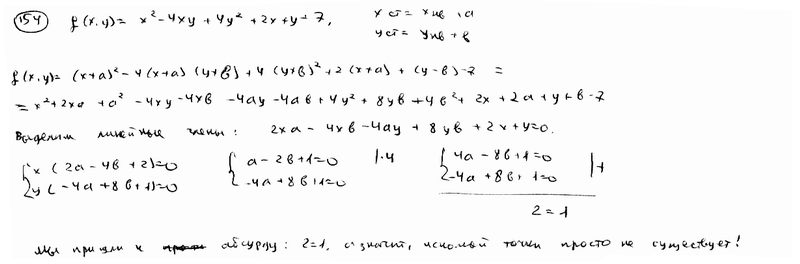 154 f(x,y) = x² - 4xy + 4y² + 2x + y + 7, xст = xнв + a
yст = yнв + в
f(x,y) = (x+a)² - 4(x+a)(y+в) + 4(y+в)² + 2(x+a) + (y-в) - 7 =
= x² + 2xa + a² - 4xy - 4xв - 4ay - 4aв + 4y² + 8yв + 4в² + 2x + 2a + y + в - 7
Выделим линейные члены: 2xa - 4xв - 4ay + 8yв + 2x + y = 0.
{x(2a - 4в + 2) = 0 {a - 2в + 1 = 0 |·4 {4a - 8в + 1 = 0 |+
{y(-4a + 8в + 1) = 0 {-4a + 8в + 1 = 0 {-4a + 8в + 1 = 0
2 = 1
Мы пришли к абсурду: 2=1, а значит, искомый точки просто не существует!